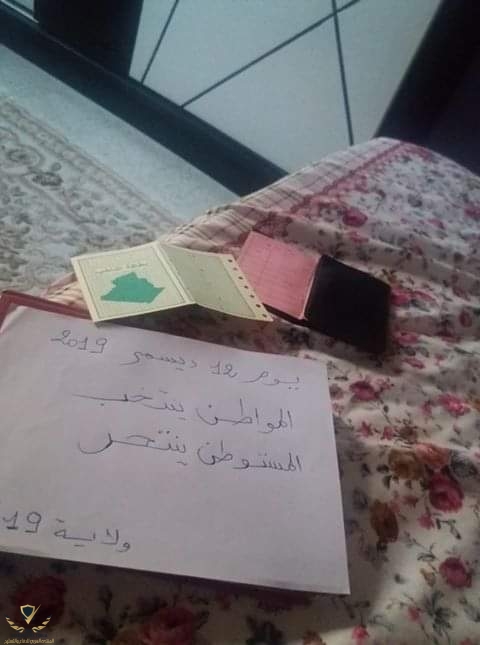 بطاقة الناخب
يوم 12 ديسمبر 2019
المواطن ينتخب
المستوطن ينتحر
ولاية 19